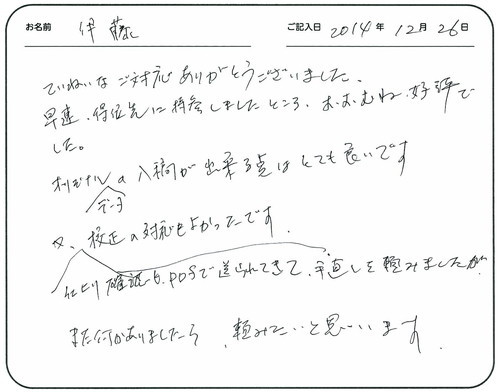 お名前 伊藤 ご記入日 2014年 12月 26日
ていねいなご対応ありがとうございました。
早速、得位先に持参しましたところ、おおむね好評で
した。
オリジナルの入稿が出来る点はとても良いです
データ
又、校正の対応もよかったです。
仕上り確認も、PDFで送られてきて、手直しを頼みましたが、
また何かありましたら、頼みたいと思います。